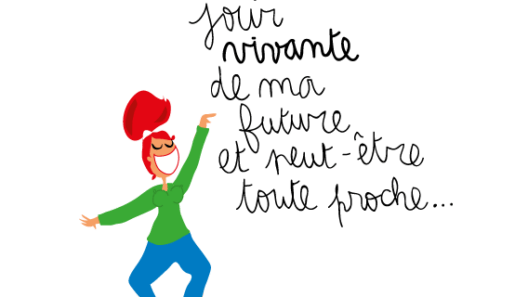 jouir
vivante
de ma
future
et peut-être
toute proche...